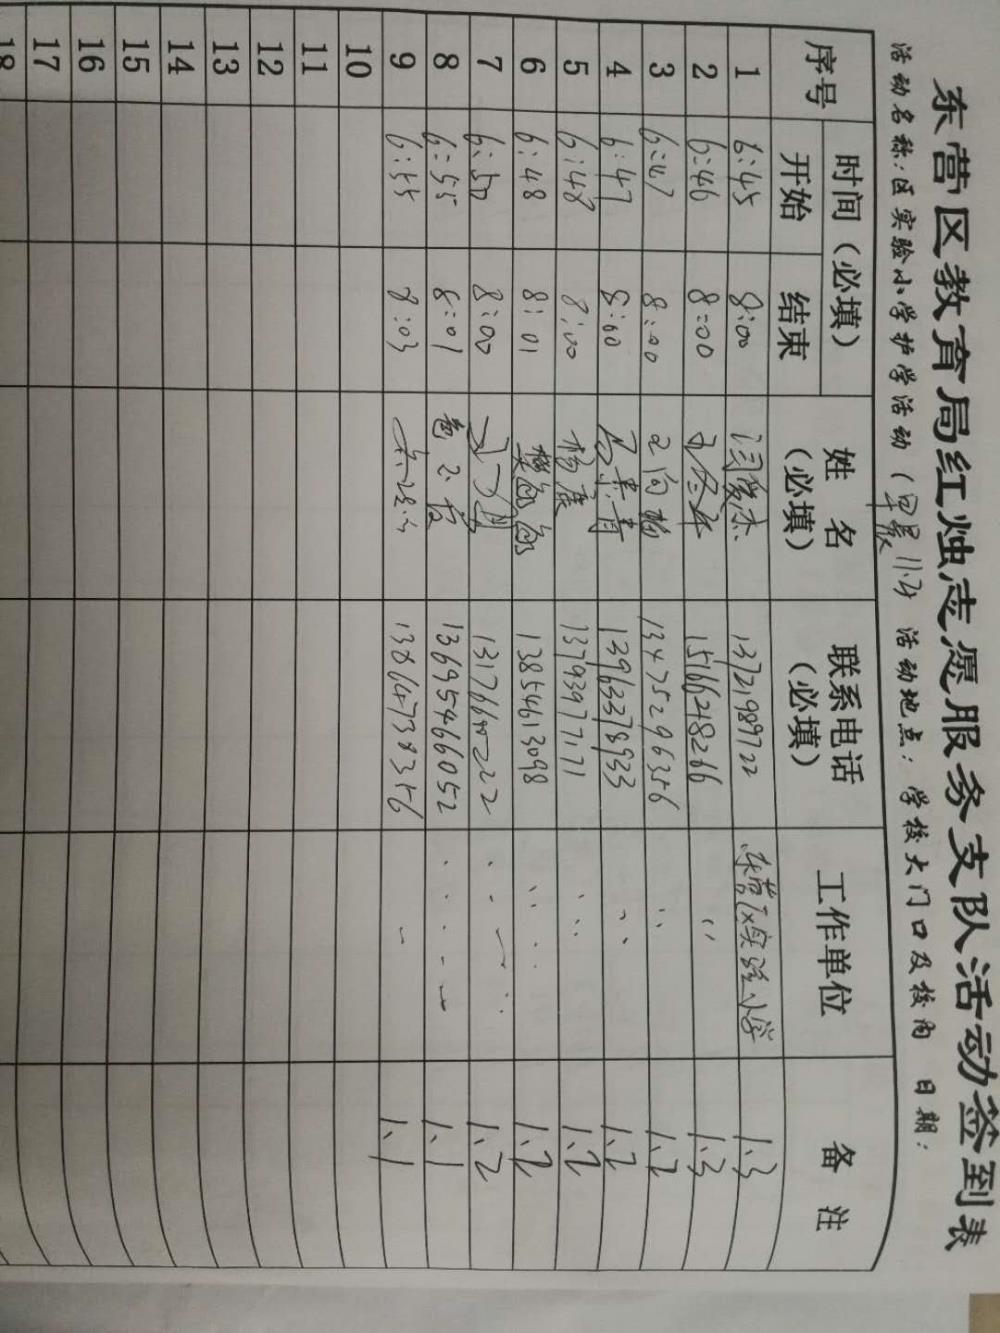 东营区教育局红烛志愿服务支队活动签到表
活动名称:区实验小学护学活动(早晨 11.24 活动地点:学校大门口及校内 日期:
序号 时间(必填) 姓名(必填) 联系电话(必填) 工作单位 备注
开始 结束
1 6:45 8:00 闫爱杰 13721989722 东营区实验小学 1.3
2 6:46 8:00 15166248266 〃 1.3
3 6:47 8:00 13475296356 〃 1.2
4 6:47 8:00 13963378933 〃 1.2
5 6:48 8:00 杨康 13793977171 〃 1.2
6 6:48 8:01 13854613098 〃 1.2
7 6:50 8:00 1.2
8 6:55 8:01 13695466052 1.1
9 6:55 8:03 13864738356 1.1
10
11
12
13
14
15
16
17
18